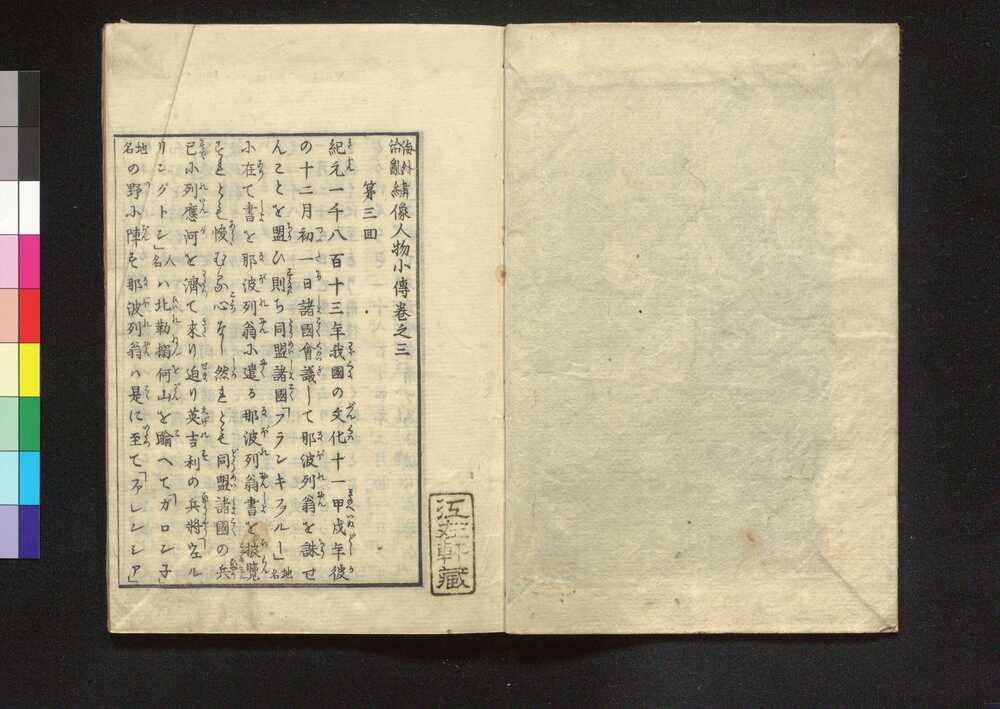 海外治亂緯像人物小傳卷之三
第三回
紀元一千八百十三年我國の文化十一甲戌年彼
の十二月初一日諸國會議して那波列翁を誅せ
んことを盟ひ則ち同盟諸國「フランキフルー」地名
小在て書を那波列翁小遣る那波列翁書を披覽
すれとも悛むる心なし然れとも同盟諸國の兵
已小列應河を濟て來り迫り英吉利の兵將「ウヱル
リングトン」人名ハ北勒搦何山を踰へて「ガロン子」
地名の野小陣す那波列翁ハ是に至て「ファレンシア」
江左軒藏